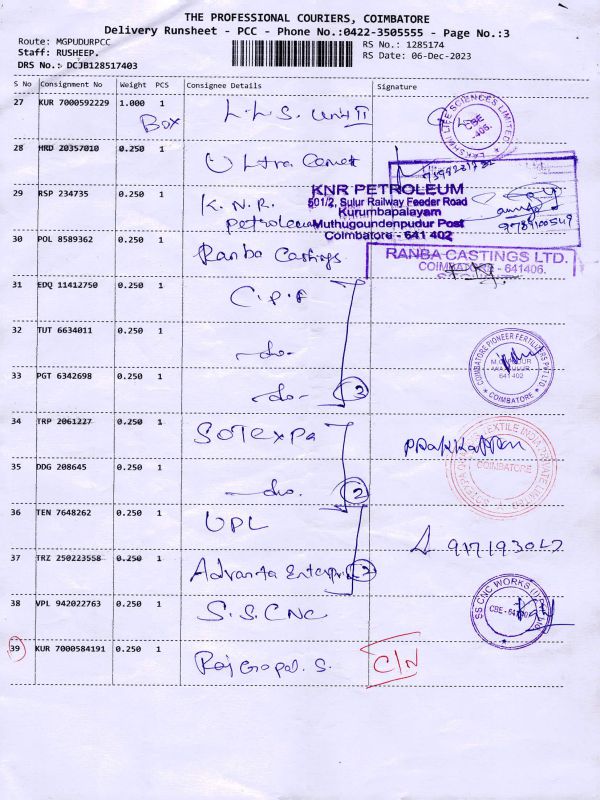 THE PROFESSIONAL COURIERS, COIMBATORE
Delivery Runsheet - PCC - Phone No.:0422-3505555 - Page No.:3
Route: MGPUDURPCC
RS No.: 1285174
Staff: RUSHEEP.
RS Date: 06-Dec-2023
DRS No.: DCJB128517403
S No Consignment No Weight PCS Consignee Details Signature
27 KUR 7000592229 1.000 1 L.L.S. Unit II
Box
LIFE SCIENCES LIMITED
CBE
28 HRD 20357010 0.250 1 Ultra Cemet
29 RSP 234735 0.250 1 K.N.R. Petroleum
KNR PETROLEUM
501/2, Sulur Railway Feeder Road
Kurumbapalayam
Muthugoundenpudur Post
Coimbatore - 641 402
9789100549
30 POL 8589362 0.250 1 Ranba Castings
RANBA CASTINGS LTD.
COIMBATORE - 641406.
31 EDQ 11412750 0.250 1 C.P.F
32 TUT 6634011 0.250 1 -do-
COIMBATORE PIONEER FERTILIZERS PVT LTD
641 402
COIMBATORE
33 PGT 6342698 0.250 1 -do- 3
34 TRP 2061227 0.250 1 SOTEXPA
TEXTILE INDIA PRIVATE LIMITED
COIMBATORE
35 DDG 208645 0.250 1 -do- 2
36 TEN 7648262 0.250 1 UPL
37 TRZ 250223558 0.250 1 Advanta Enterpri 2
38 VPL 942022763 0.250 1 S.S.CNC
SS CNC WORKS (I) P Ltd
39 KUR 7000584191 0.250 1 Raj Gopal. S.
C/N